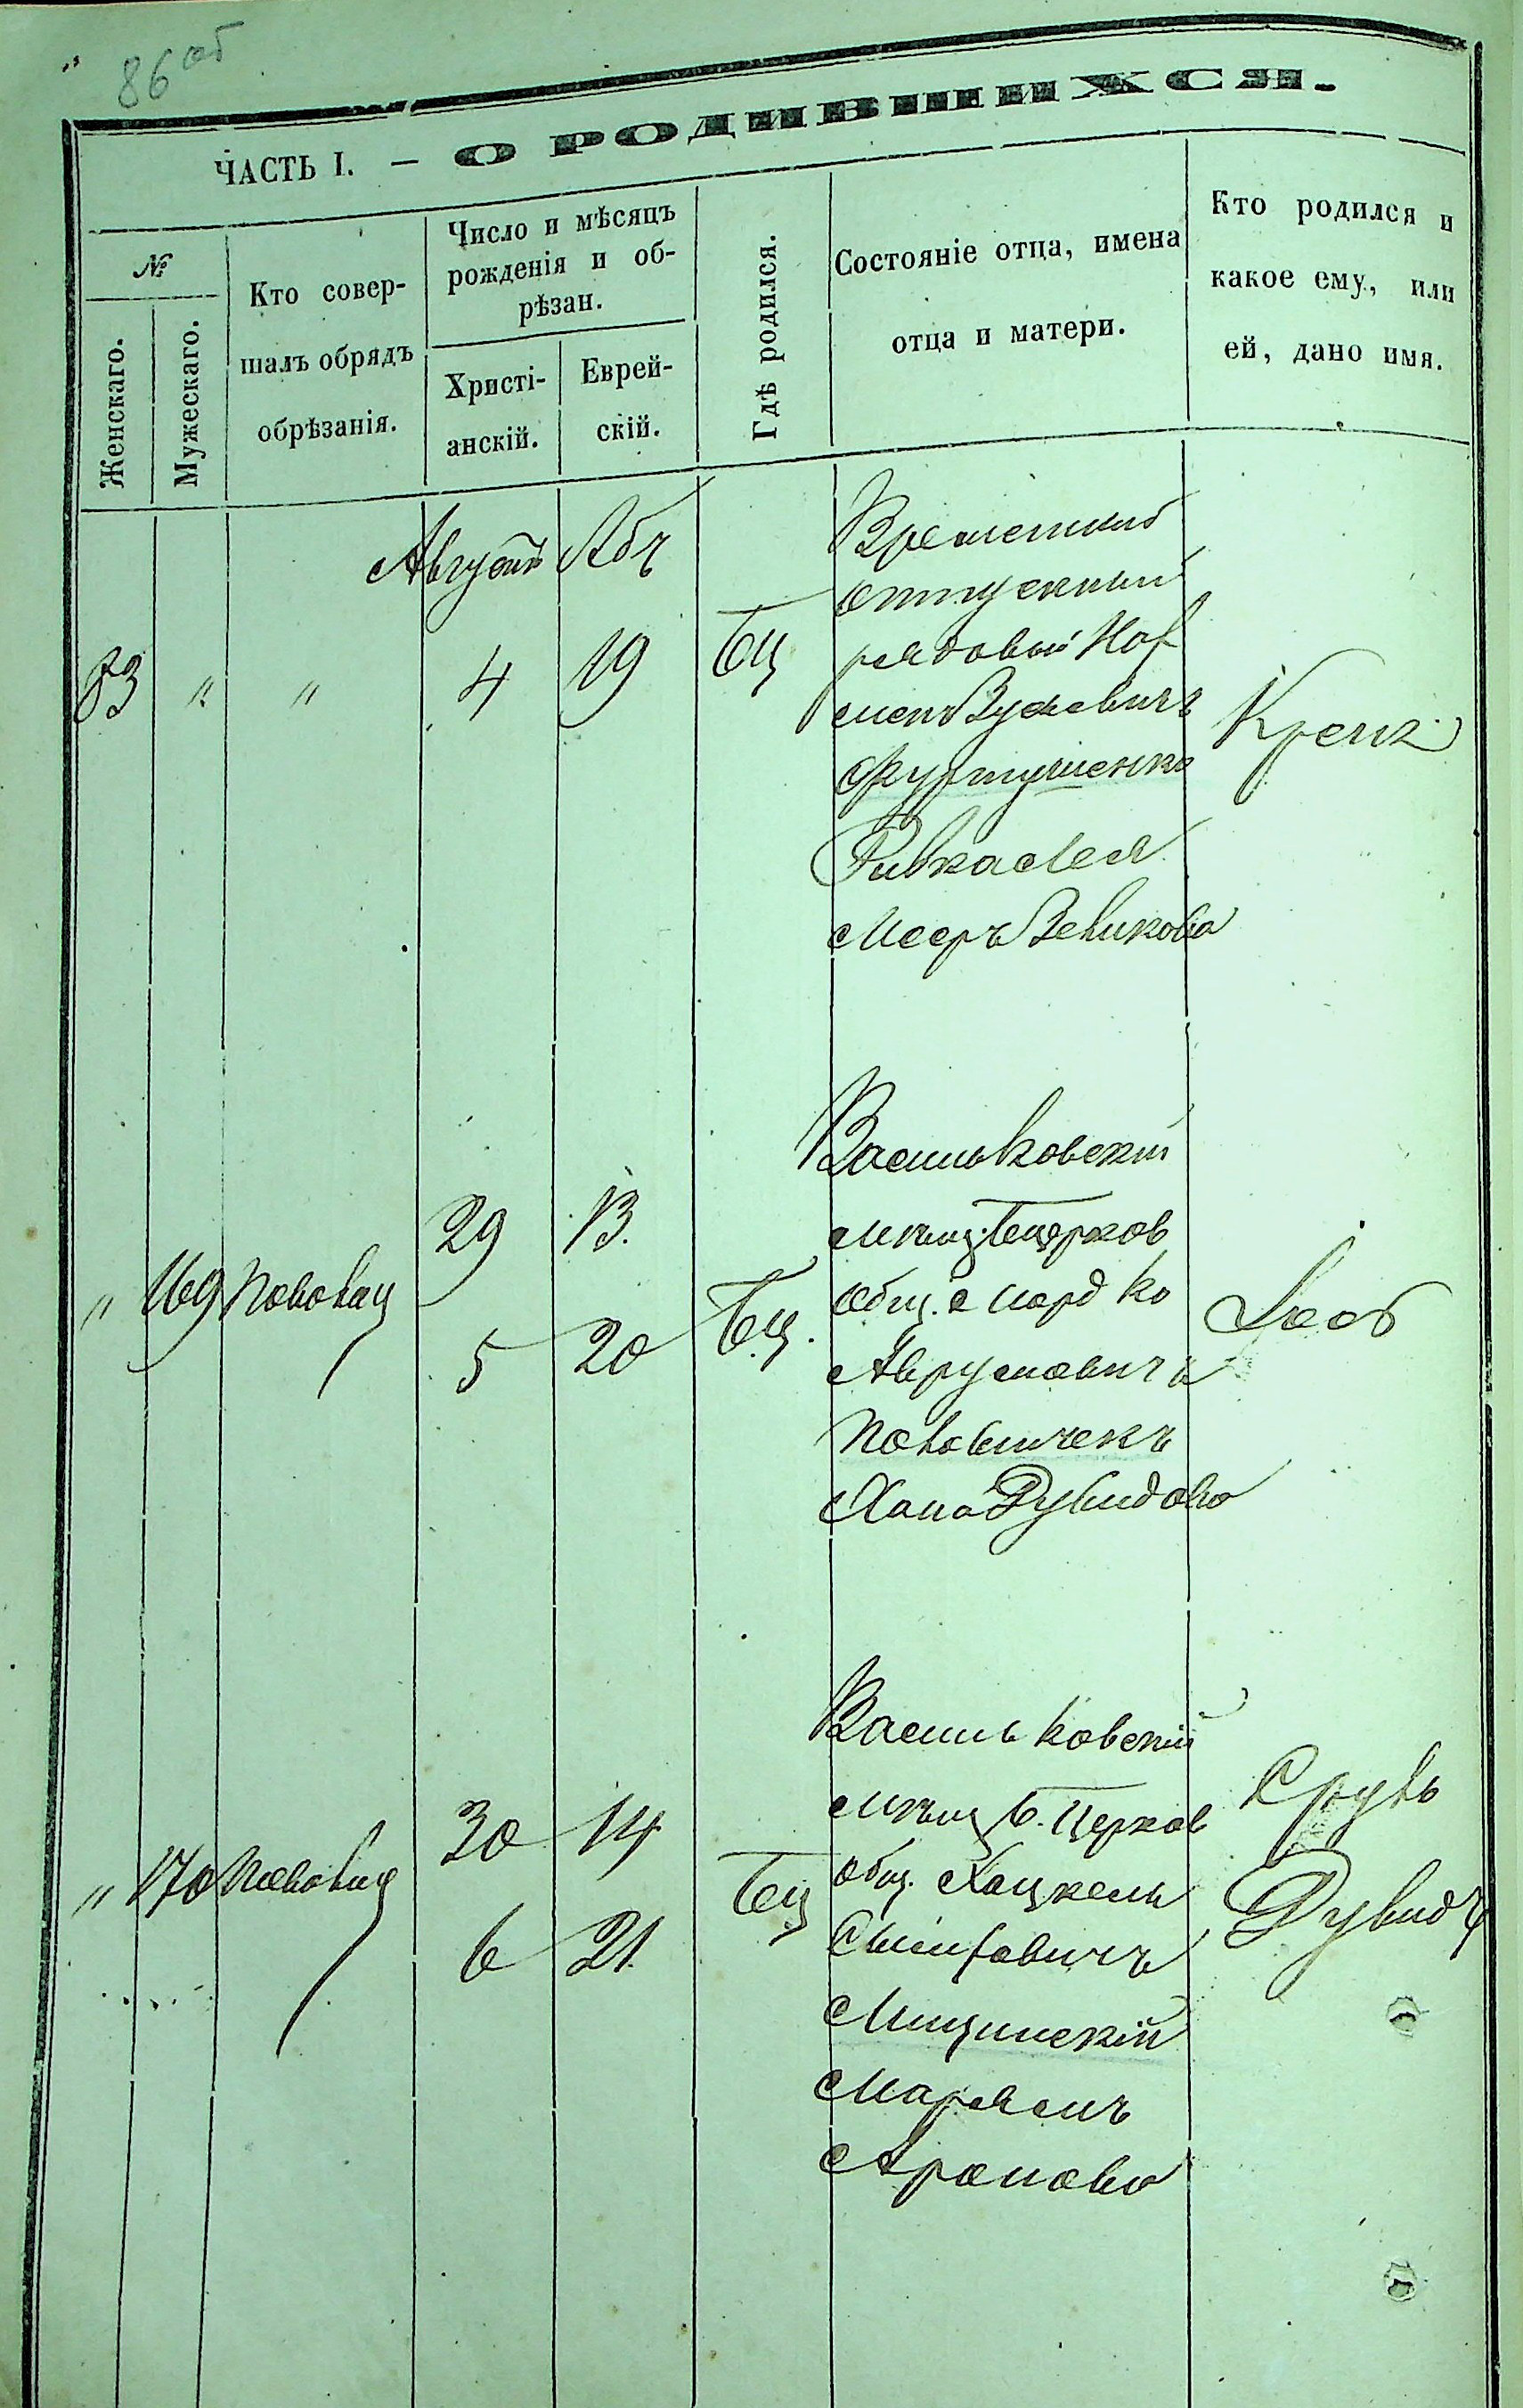 86 об
ЧАСТЬ I. — О РОДИВШИХСЯ.
№
Женскаго.
Мужескаго.
Кто совер-
шалъ обрядъ
обрѣзанія.
Число и мѣсяцъ
рожденія и об-
рѣзан.
Христі-
анскій.
Еврей-
скій.
Гдѣ родился.
Состояніе отца, имена
отца и матери.
Кто родился и
какое ему, или
ей, дано имя.
Августъ Абъ
83 " " 4 19 Бц
Временно
отпускный
рядовый
Фуртушенко
Ривка Лея
Мееръ Зеликова
Крейк
" 169 Половец 29 13.
5 20 Бц.
Васильковскій
мѣщ. Бѣцерков
общ. Мордко
Аврумовичъ
Половинчекъ
Хана Дувидова
Лейб
" 170 Половец 30 14
6 21. Бц
Васильковскій
мѣщ Б. Церков
общ. Хацкель
Мицинскій
Марьямъ
Аронова
Сруль
Дувидъ